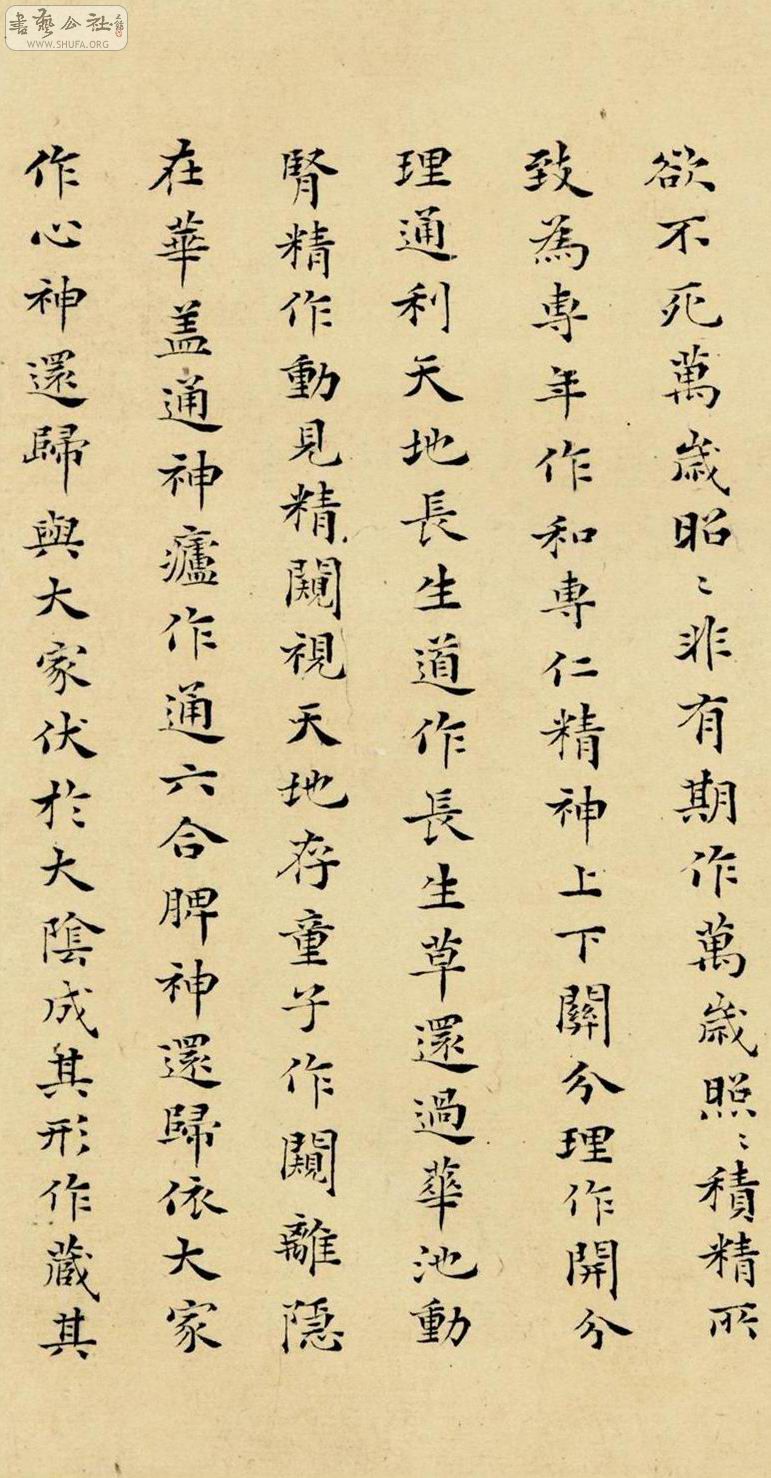 欲不死萬歲昭〻非有期作萬歲照〻積精所
致為專年作和專仁精神上下關分理作開分
理通利天地長生道作長生草還過華池動
腎精作動見精闚視天地存童子作闚離隱
在華盖通神瀘作通六合脾神還歸依大家
作心神還歸與大家伏於大陰成其形作藏其
書藝公社
WWW.SHUFA.ORG